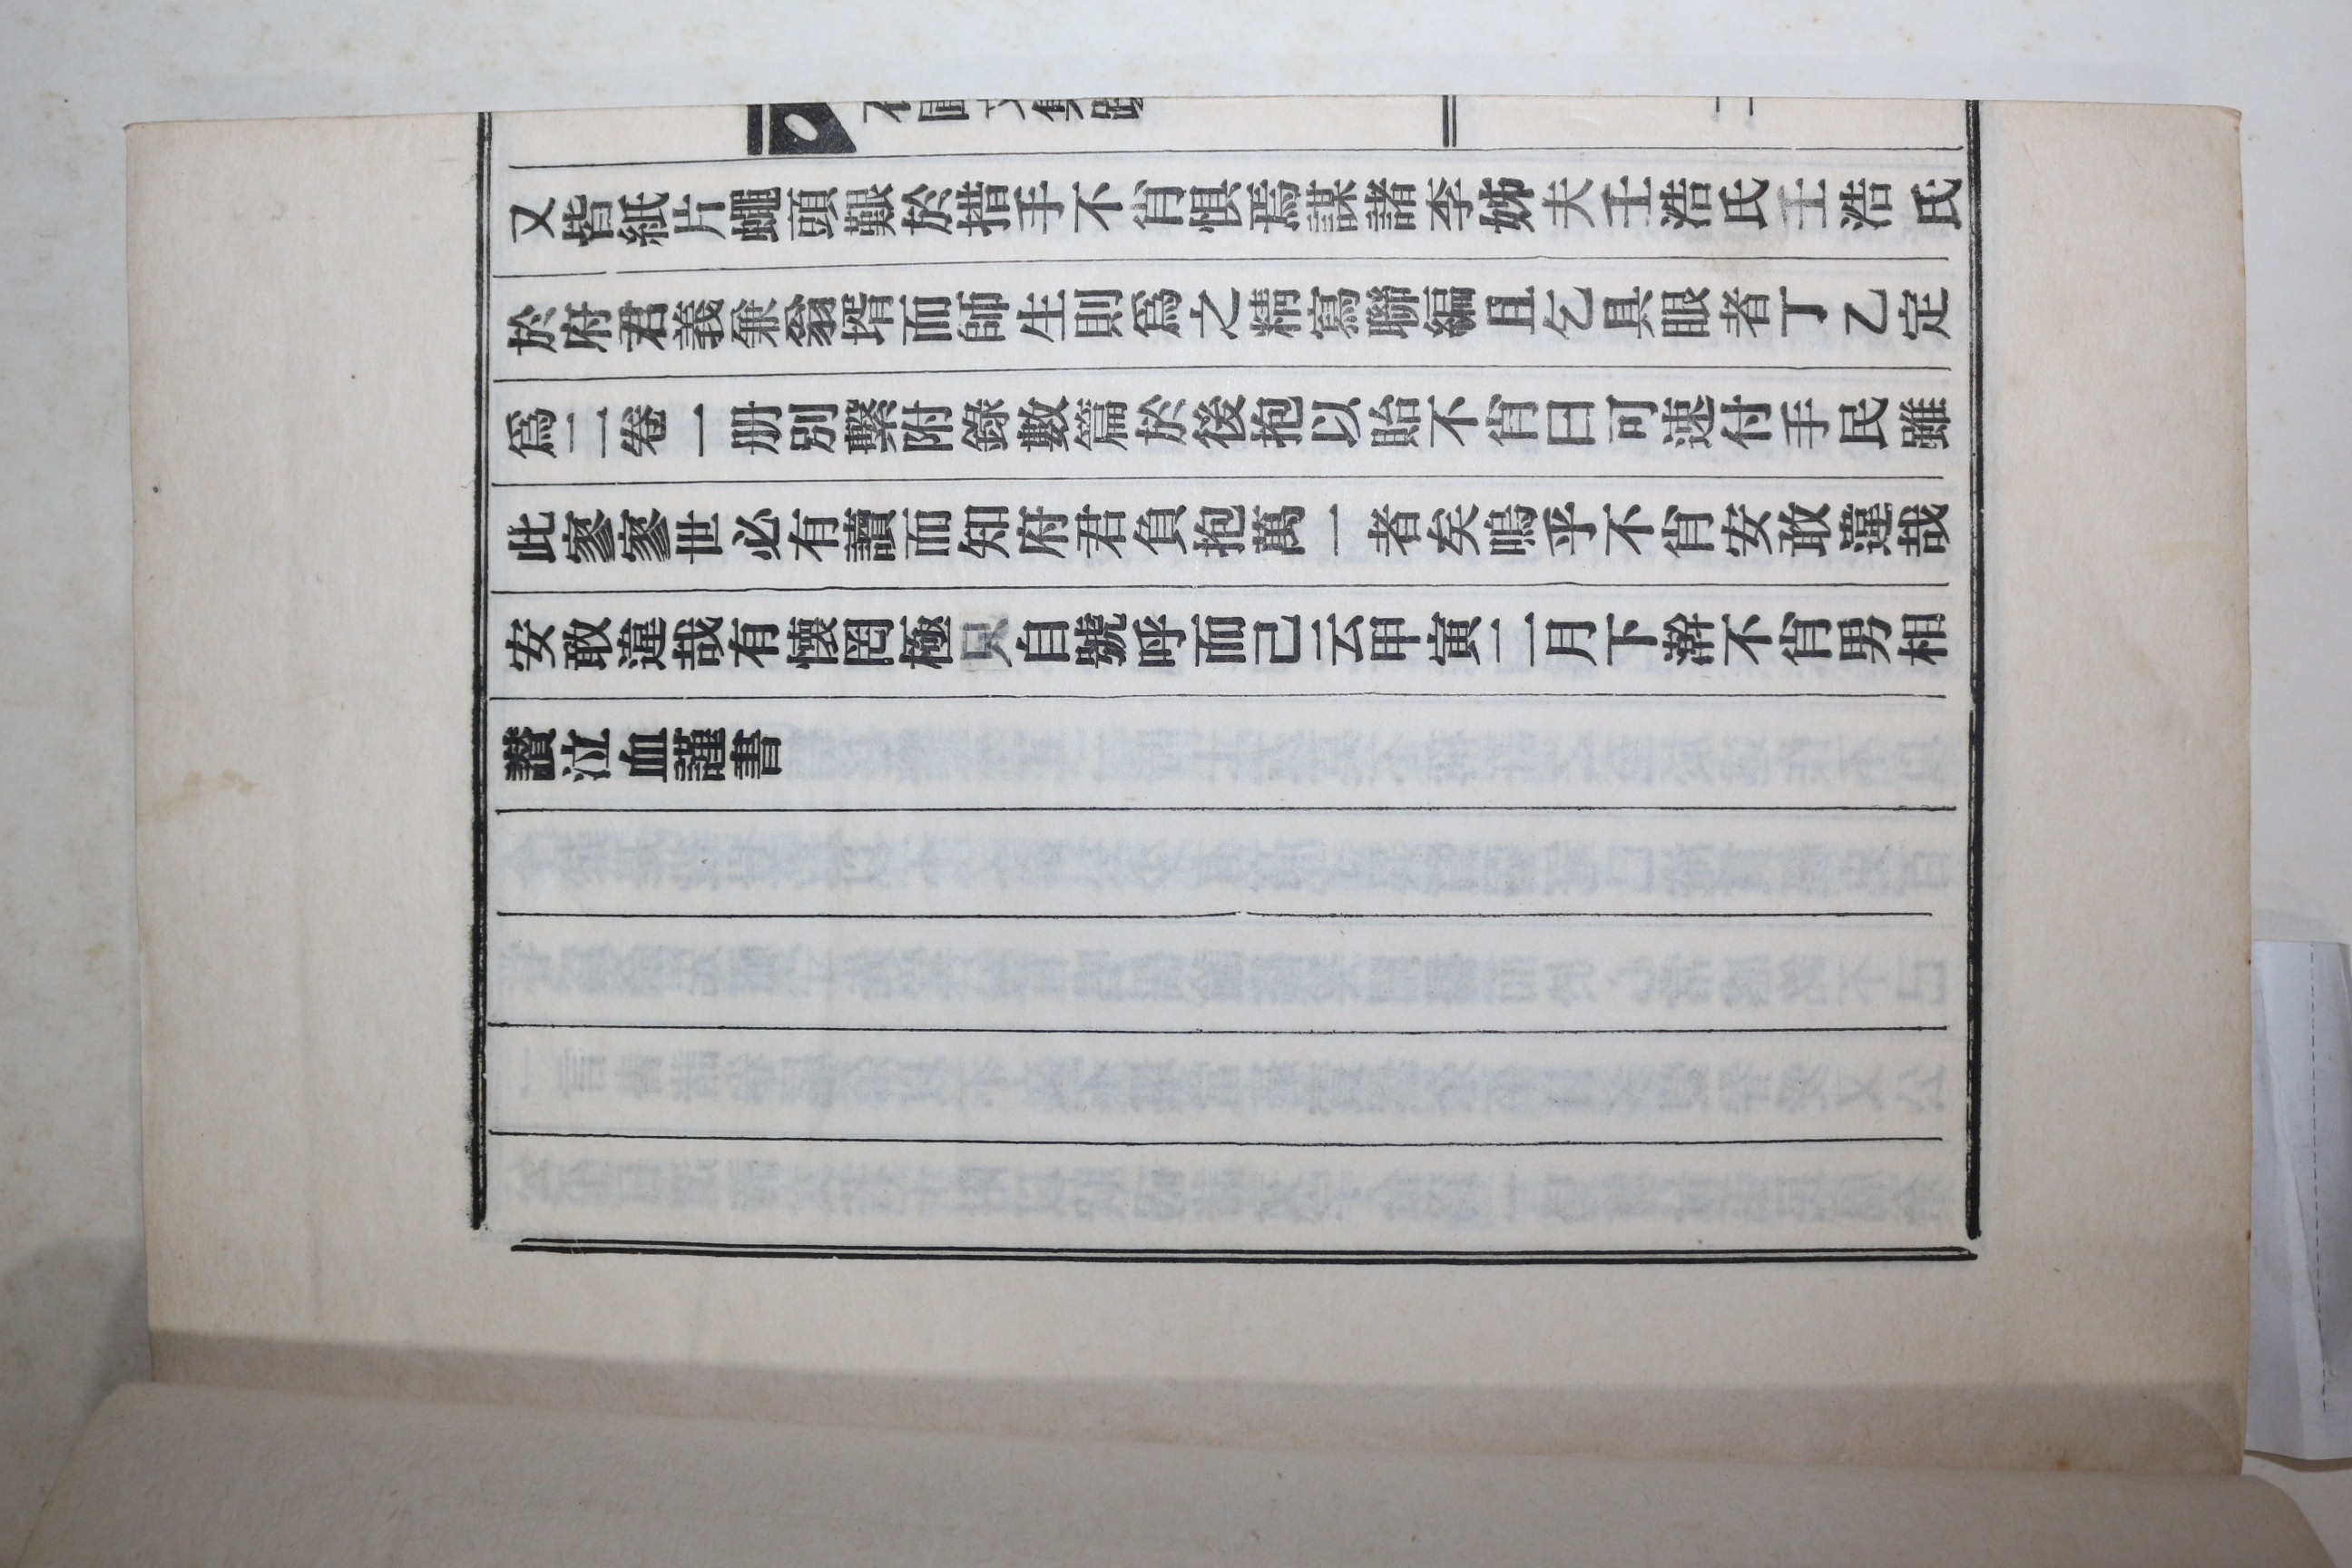 又皆紙片蠅頭艱於措手不肖惧焉謀諸李姊夫壬浩氏壬浩氏
於府君義兼翁壻而師生則爲之精寫聯編且乞具眼者丁乙定
爲二卷一册別繫附錄數篇於後抱以貽不肖曰可速付手民雖
此寥寥世必有讀而知府君負抱萬一者矣嗚乎不肖安敢違哉
安敢違哉有懷罔極只自號呼而已云甲寅二月下澣不肖男相
讚泣血謹書